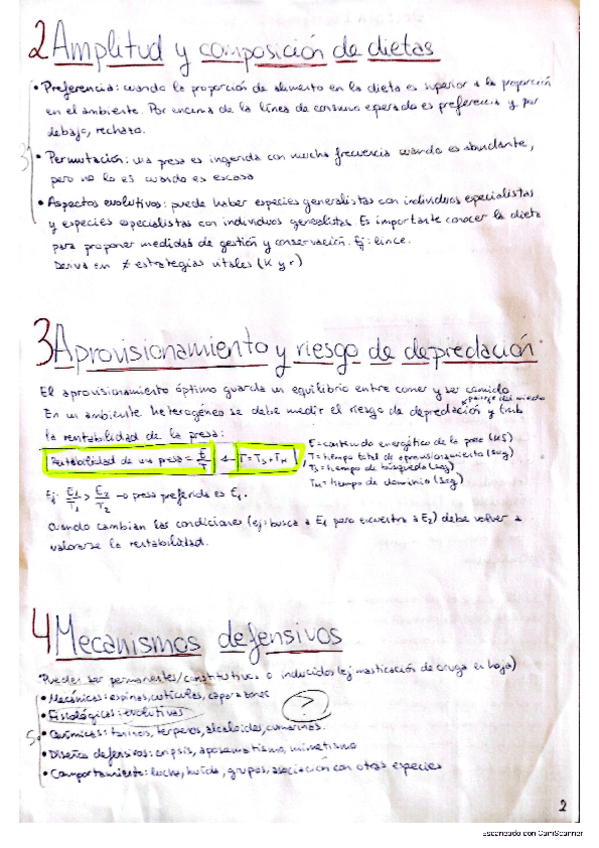 2 Amplitud y composición de dietas
• Preferencia: cuando la proporción de alimento en la dieta es superior a la proporción
en el ambiente. Por encima de la línea de consumo esperado es preferencia y por
debajo, rechazo.
3
• Permutación: una presa es ingerida con mucha frecuencia cuando es abundante,
pero no lo es cuando es escasa
• Aspectos evolutivos: puede haber especies generalistas con individuos especialistas
y especies especialistas con individuos generalistas. Es importante conocer la dieta
para proponer medidas de gestión y conservación. Ej: lince.
Deriva en ≠ estrategias vitales (K y r)
3 Aprovisionamiento y riesgo de depredación
El aprovisionamiento óptimo guarda un equilibrio entre comer y ser comido
paisaje del miedo
En un ambiente heterogéneo se debe medir el riesgo de depredación y tmb
la rentabilidad de la presa:
Rentabilidad de una presa = E/T ← T = Ts + TH
E = contenido energético de la presa (KJ)
T = tiempo total de aprovisionamiento (seg)
Ts = tiempo de búsqueda (seg)
TH = tiempo de dominio (seg)
Ej: E1/T1 > E2/T2 → presa preferida es E1.
Cuando cambian las condiciones (ej: busca a E1 pero encuentra a E2) debe volver a
valorarse la rentabilidad.
4 Mecanismos defensivos
Pueden ser permanentes/constitutivos o inducidos (ej masticación de oruga en hoja)
• Mecánicos: espinas, cutículas, caparazones
• Fisiológicas: evolutivas
?
5
• Químicas: taninos, terpenos, alcaloides, cumarinas.
• Diseños defensivos: cripsis, aposematismo, mimetismo
• Comportamiento: lucha, huida, grupos, asociación con otras especies
2
Escaneado con CamScanner